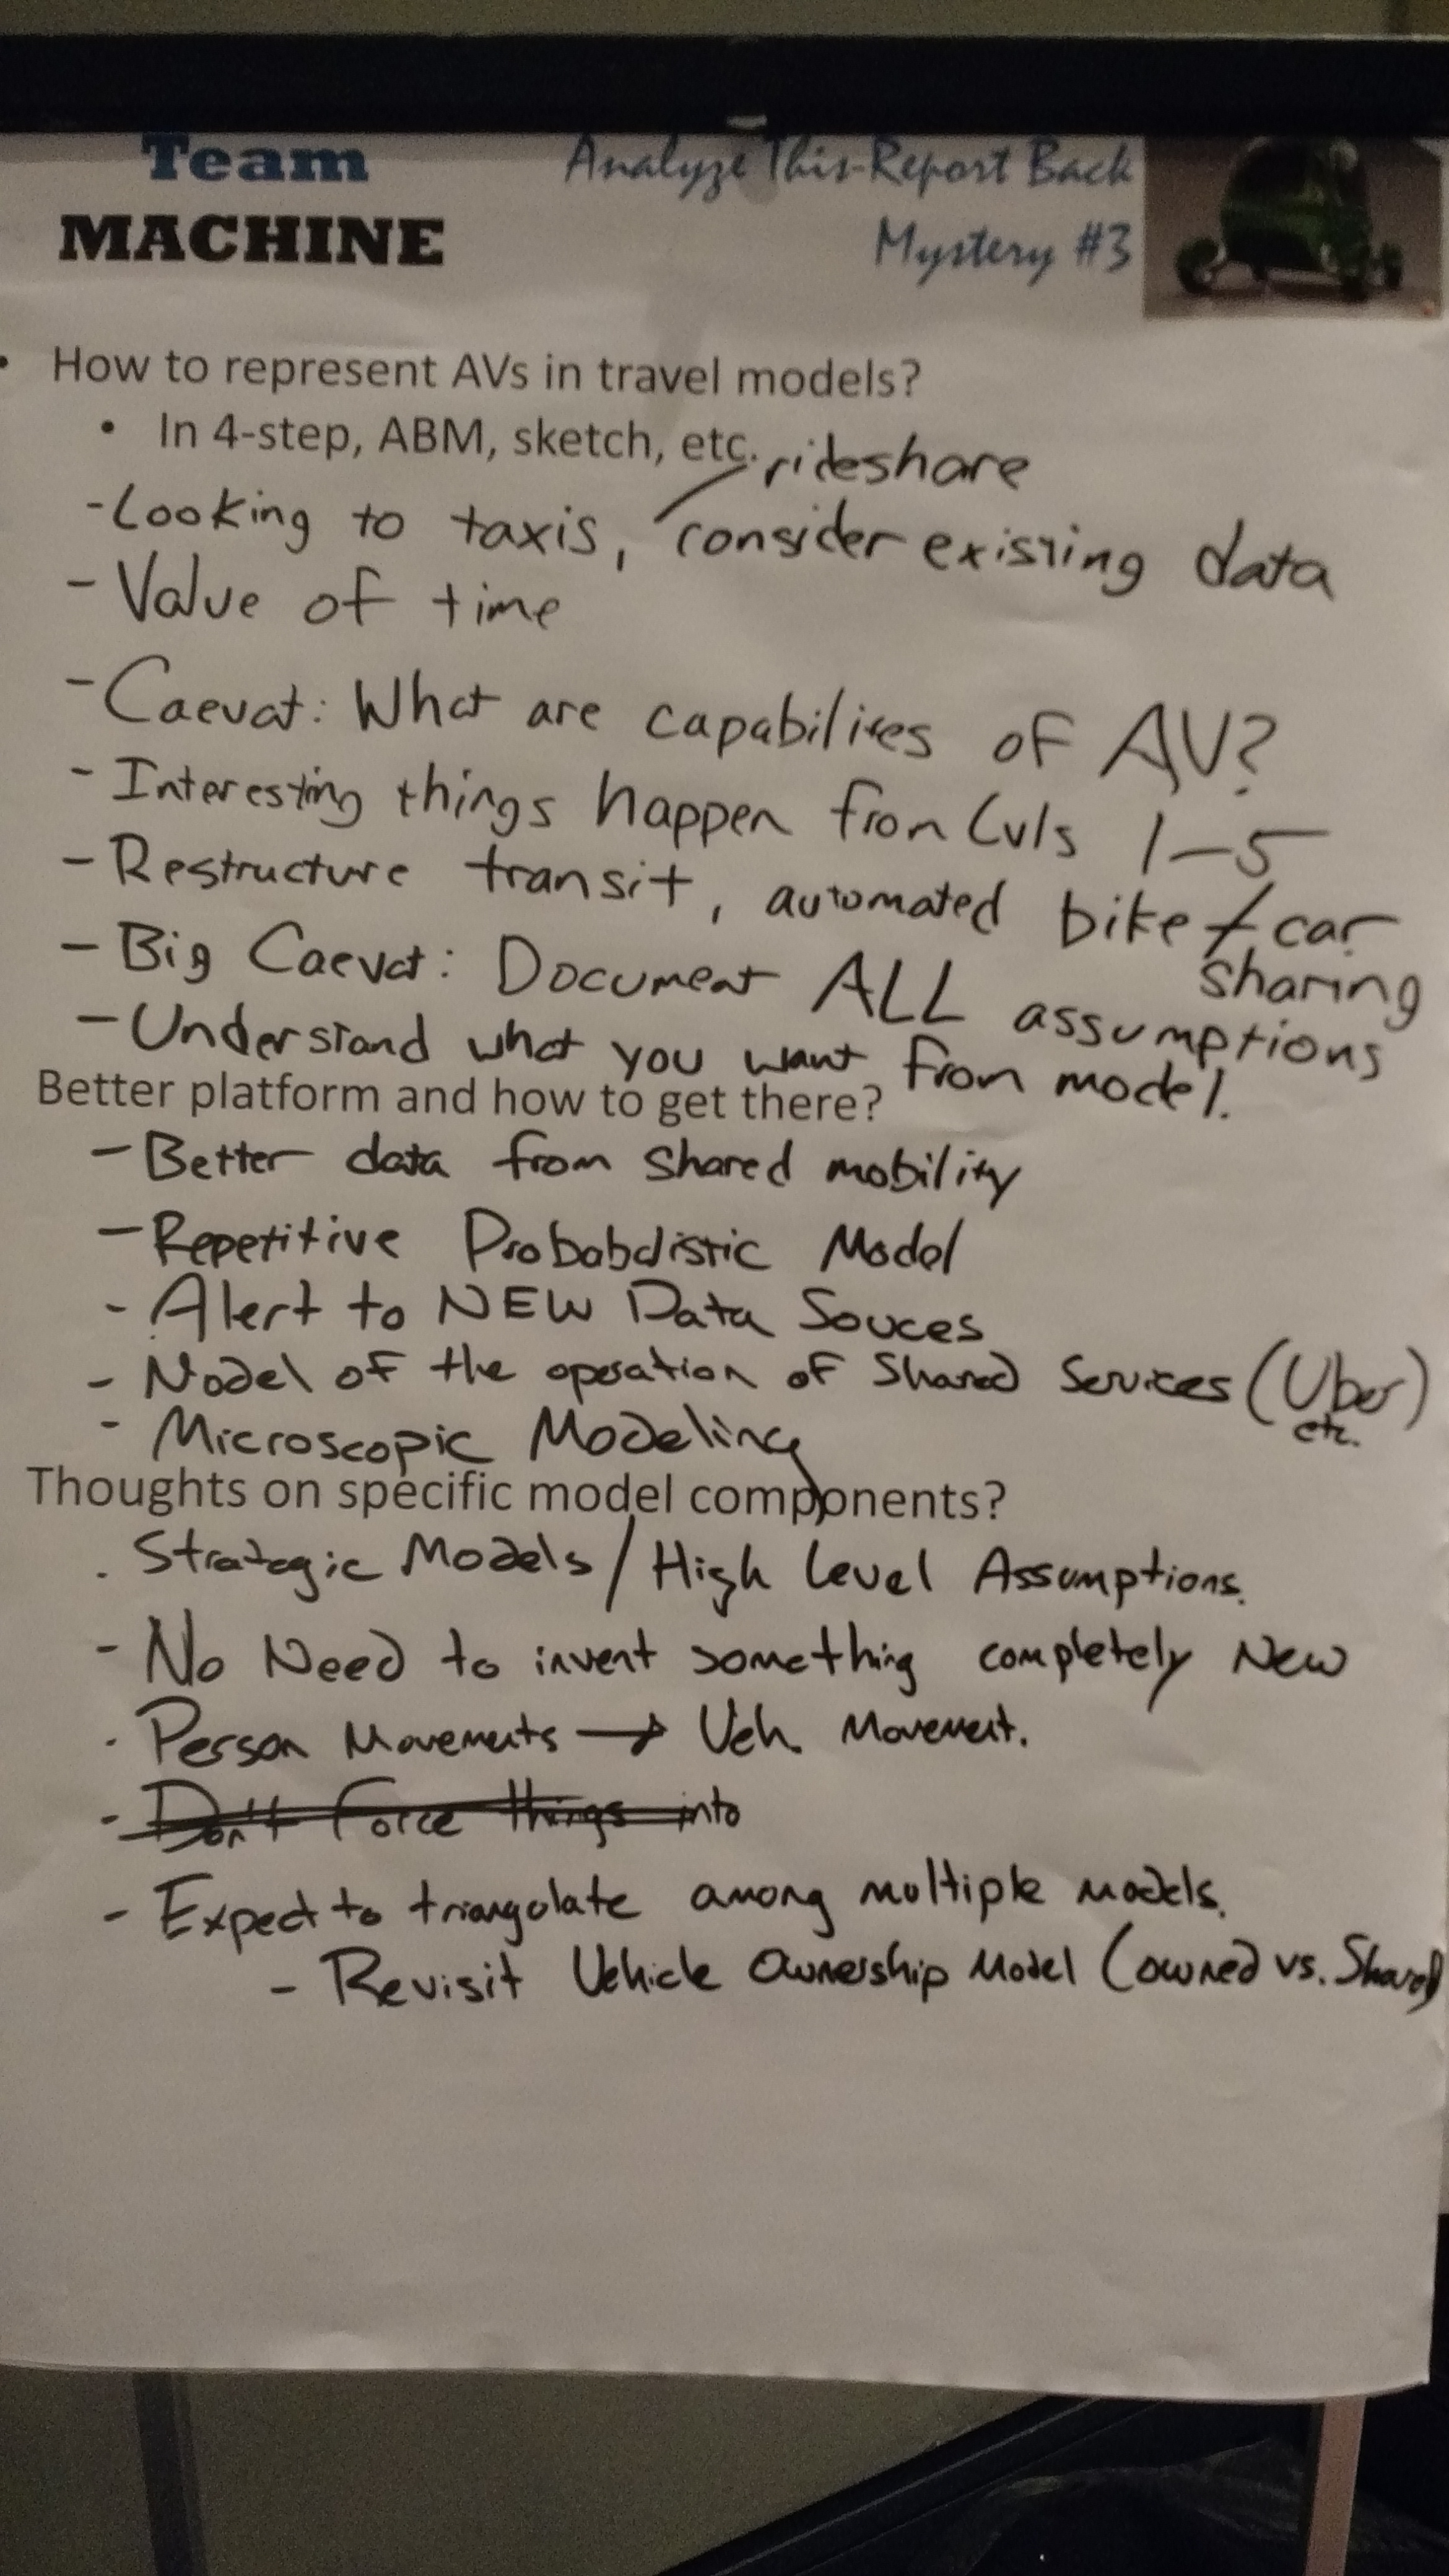 Team
MACHINE
Analyze This-Report Back
Mystery #3
• How to represent AVs in travel models?
• In 4-step, ABM, sketch, etc.
rideshare
- Looking to taxis, consider existing data
- Value of time
- Caevat: What are capabilites of AV?
- Interesting things happen from Lvls 1-5
- Restructure transit, automated bike + car
sharing
- Big Caevat: Document ALL assumptions
- Understand what you want from model.
Better platform and how to get there?
- Better data from shared mobility
- Repetitive Probabalistic Model
- Alert to NEW Data Souces
- Model of the operation of Shared Services (Uber)
etc.
- Microscopic Modeling
Thoughts on specific model components?
. Strategic Models / High Level Assumptions.
- No Need to invent something completely New
. Person Movements → Veh. Movement.
- Don't Force things into
- Expect to triangulate among multiple models.
- Revisit Vehicle Ownership Model (owned vs. Shared)